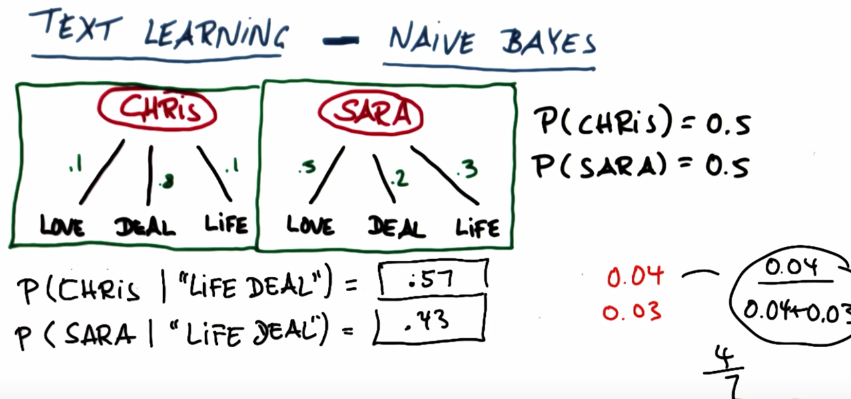 TEXT LEARNING - NAIVE BAYES
CHRiS
.1 .8 .1
LOVE DEAL LiFE
SARA
.5 .2 .3
LOVE DEAL LiFE
P(CHRiS) = 0.5
P(SARA) = 0.5
P(CHRiS | "LiFE DEAL") = .57
P(SARA | "LiFE DEAL") = .43
0.04
0.03
0.04
0.04+0.03
4
7